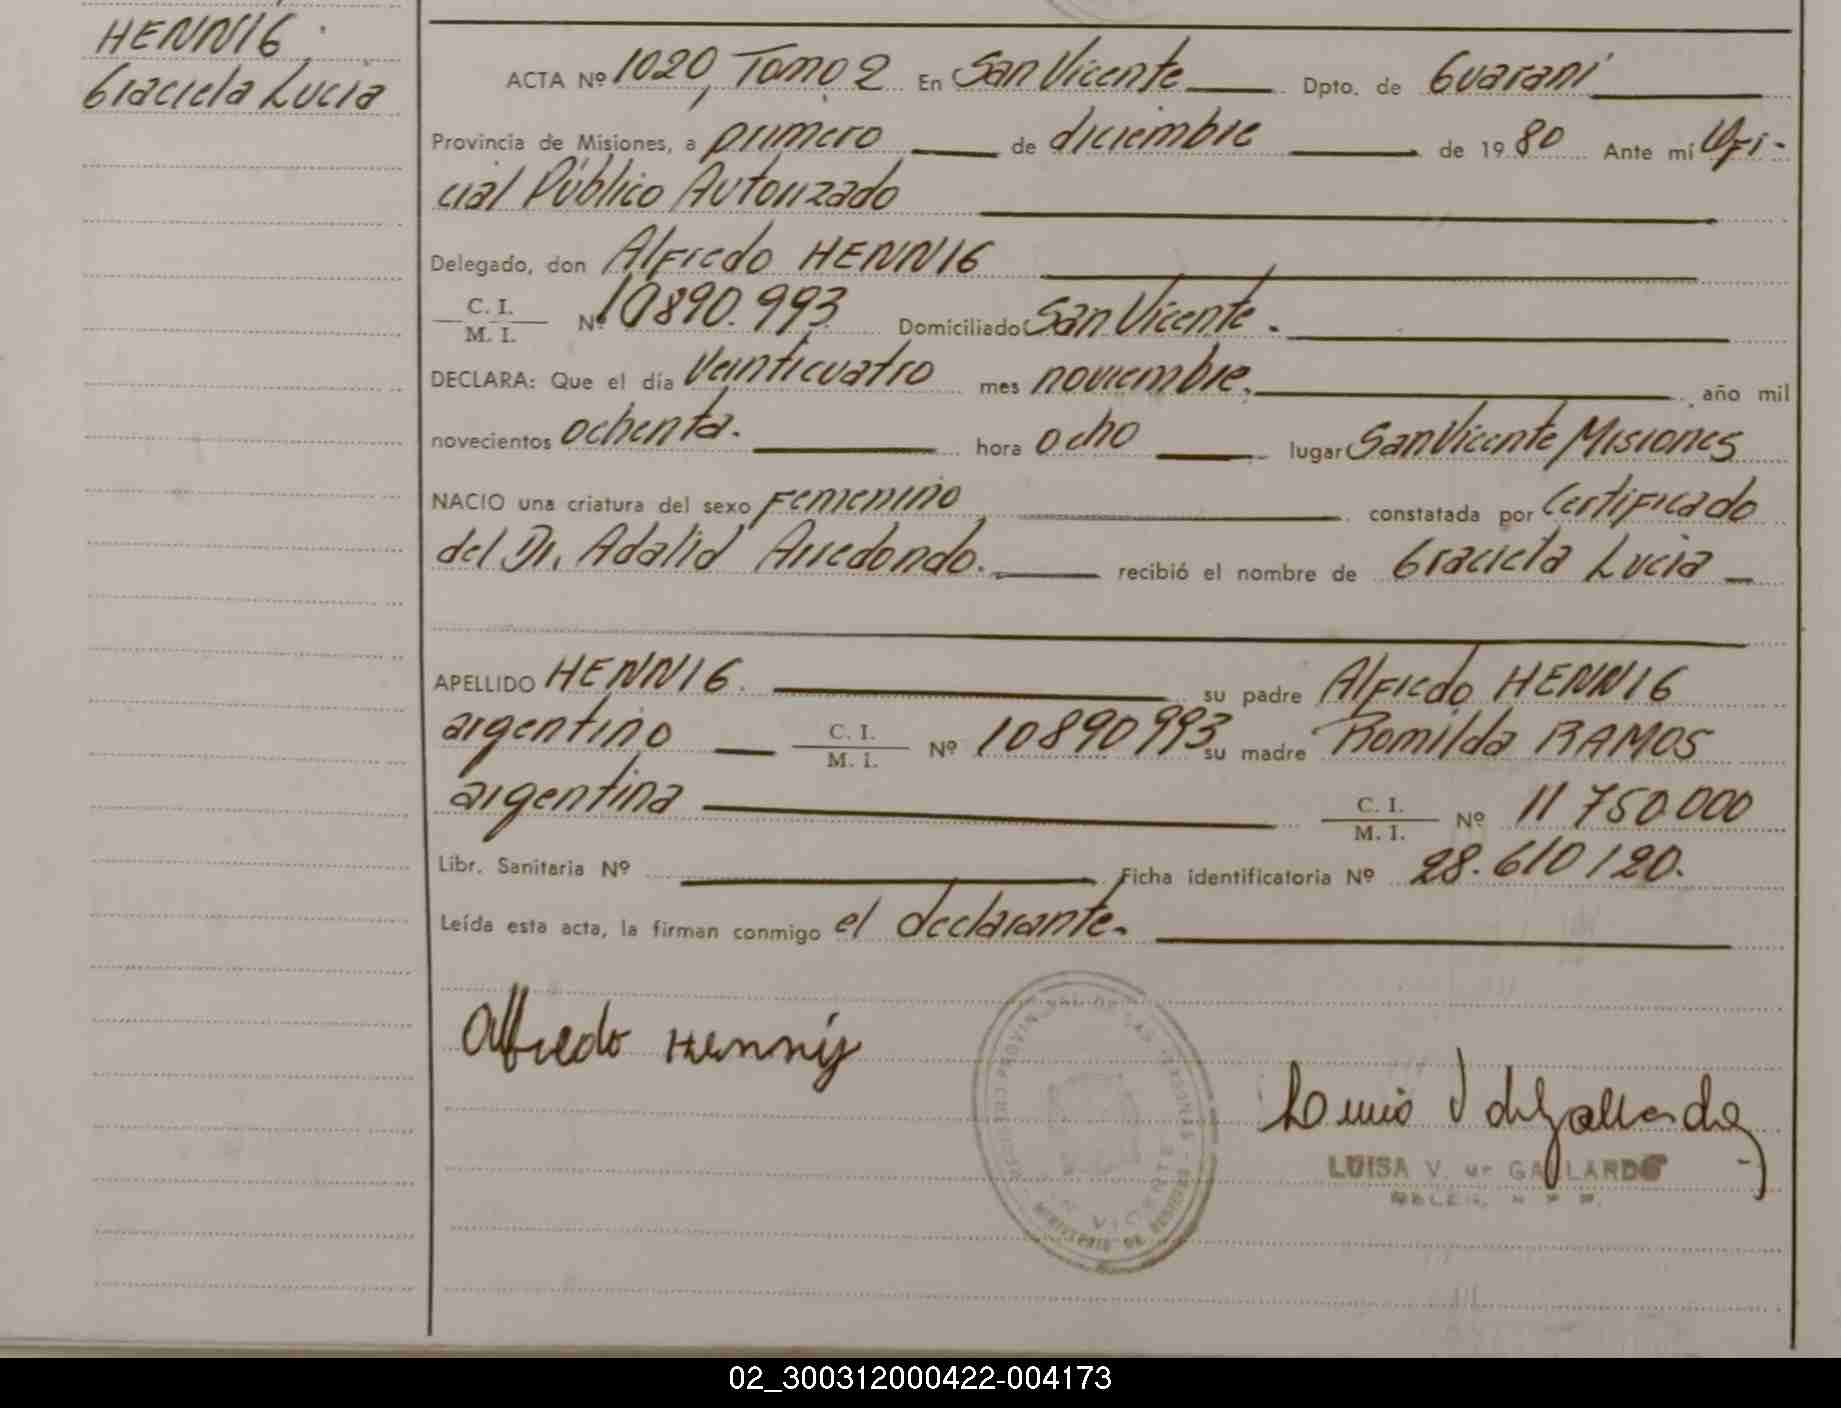 HENNIG
Graciela Lucia
ACTA Nº 1020, Tomo 2 En San Vicente Dpto. de Guaraní
Provincia de Misiones, a primero de diciembre de 1980 Ante mí Ofi-
cial Público Autorizado
Delegado, don Alfredo HENNIG
C. I.
M. I. Nº 10890.993 Domiciliado San Vicente.
DECLARA: Que el día Veinticuatro mes noviembre. año mil
novecientos ochenta. hora ocho lugar San Vicente Misiones
NACIO una criatura del sexo Femenino constatada por Certificado
del Dr. Adalid Arredondo. recibió el nombre de Graciela Lucia
APELLIDO HENNIG. su padre Alfredo HENNIG
argentino C. I. M. I. Nº 10890993 su madre Romilda RAMOS
argentina C. I. M. I. Nº 11750000
Libr. Sanitaria Nº Ficha identificatoria Nº 28.610120.
Leída esta acta, la firman conmigo el declarante.
Alfredo Hennig
REGISTRO PROVINCIAL DE LAS PERSONAS - MINISTERIO DE
VICENTE
LUISA V. de GALLARDO
02_300312000422-004173